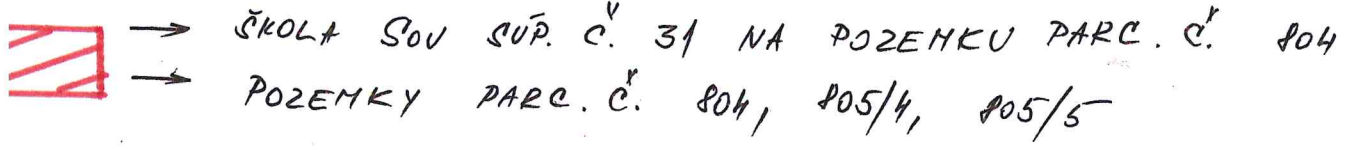 → ŠKOLA SOU SÚP. Č. 31 NA POZEMKU PARC. Č. 804
→ POZEMKY PARC. Č. 804, 805/4, 805/5